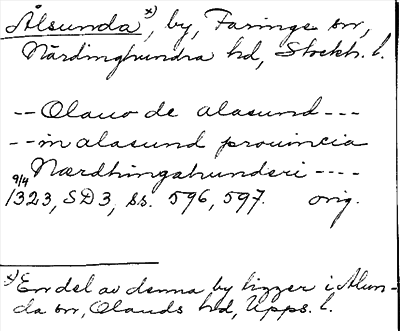 Ålsunda *), by, Faringe sn,
Närdinghundra hd, Stockh. l.
-- Olauo de alasund ---
-- in alasund prouincia
Nærdhingahunderi ----
9/4
1323, SD 3, ss. 596, 597. orig.
*) En del av denna by ligger i Alun-
da sn, Olands hd, Upps. l.